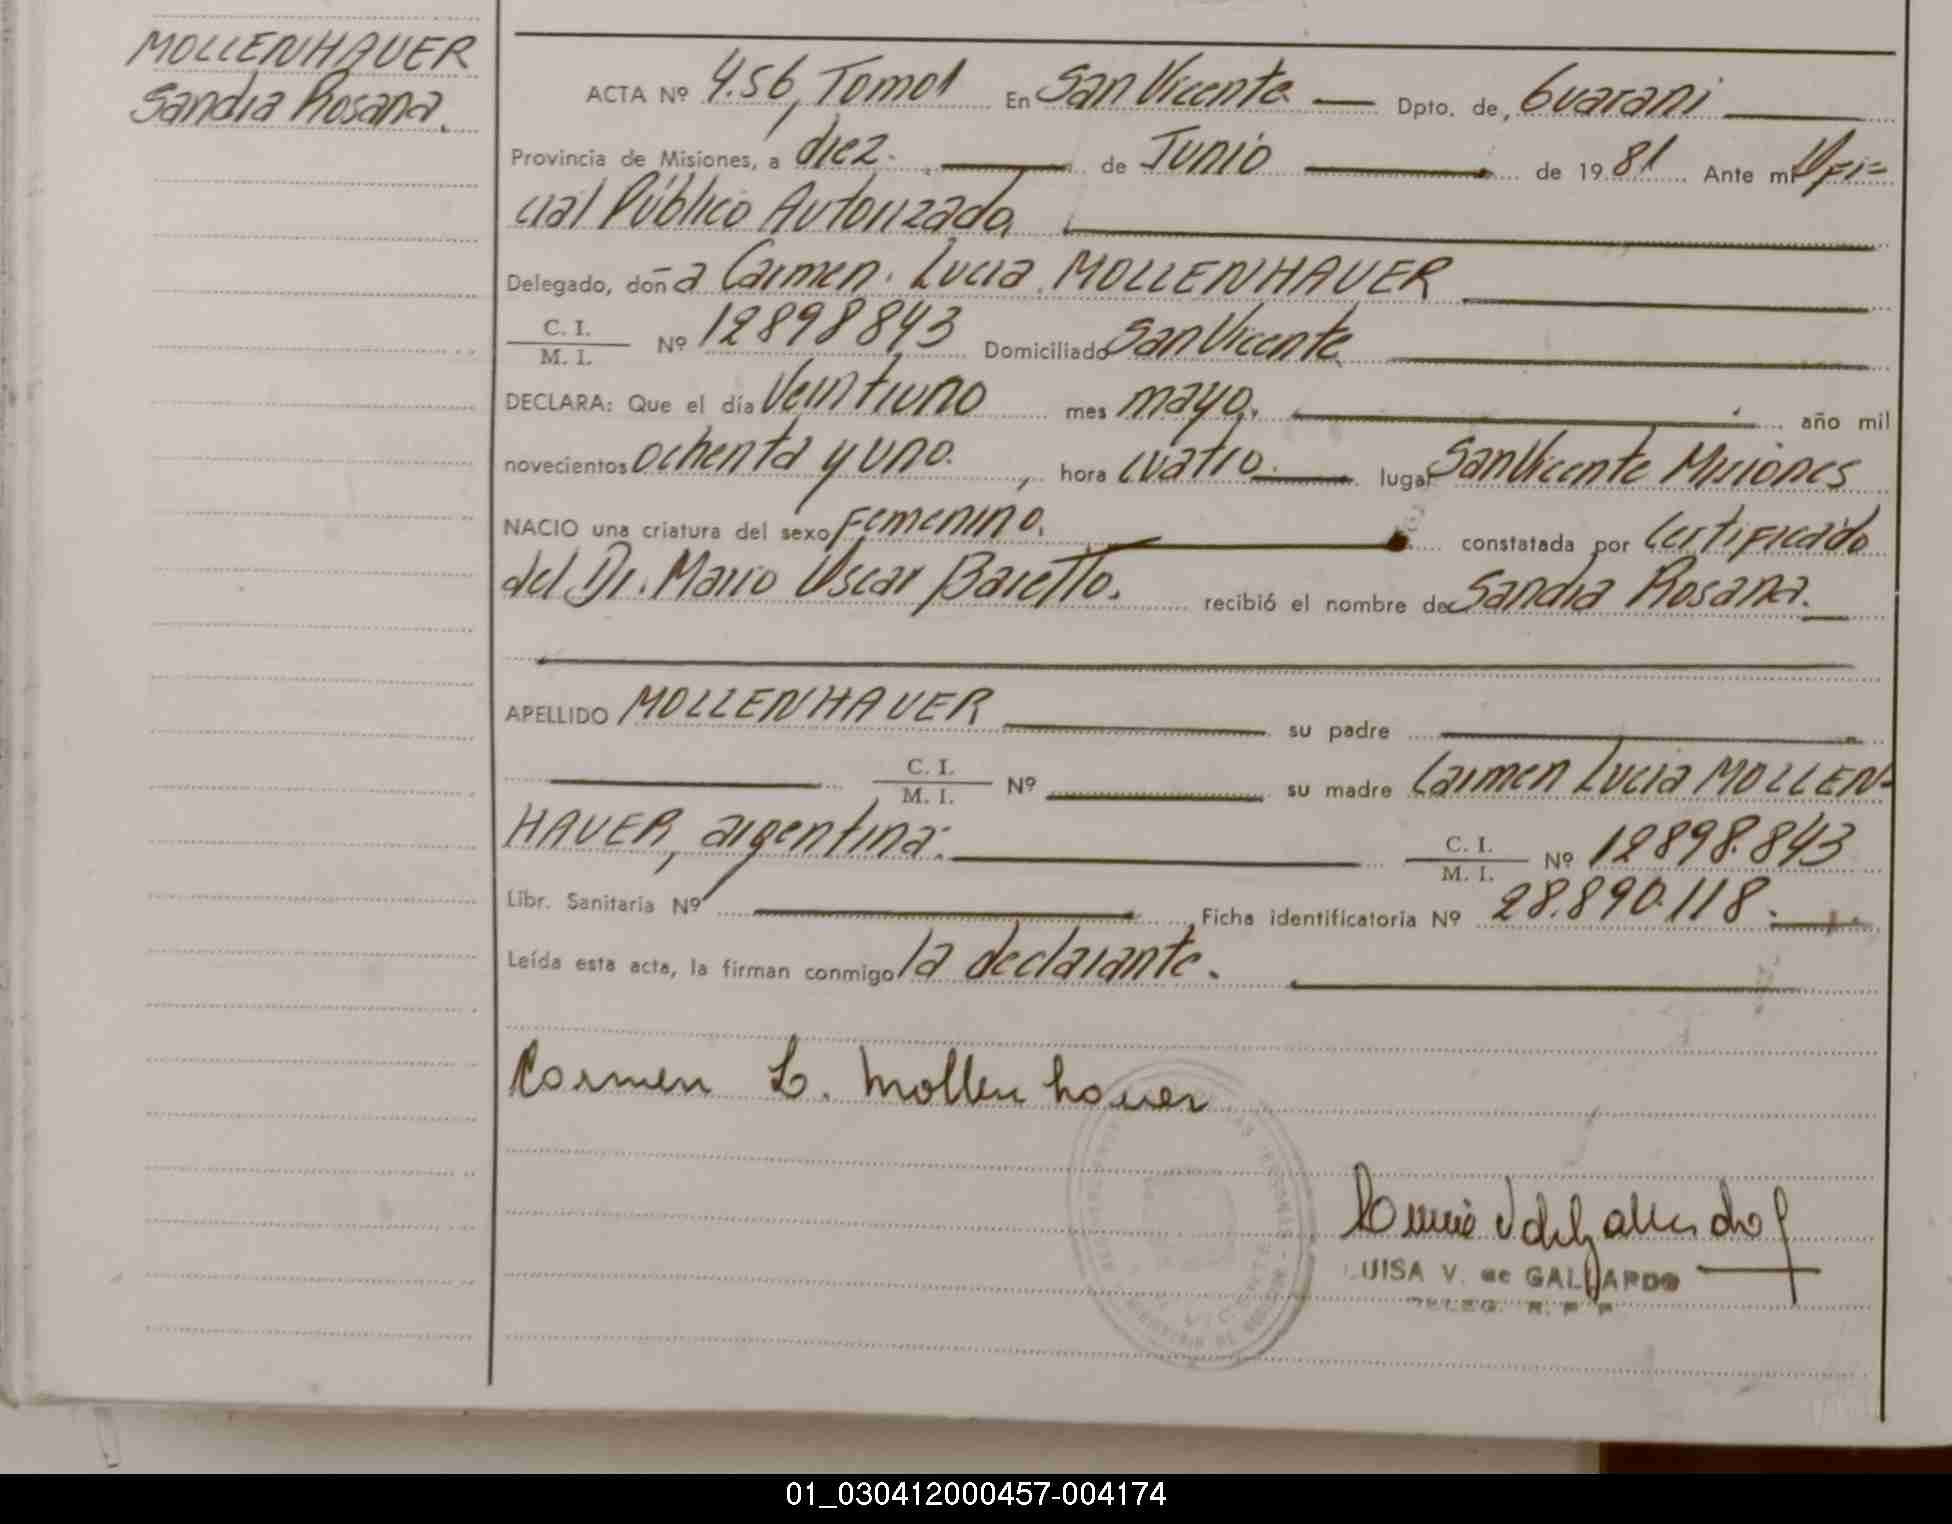 MOLLENHAUER
Sandra Rosana.
ACTA Nº 456, Tomo1 En San Vicente Dpto. de, Guarani
Provincia de Misiones, a diez. de Junio de 1981 Ante mi Ofi=
cial Público Autorizado,
Delegado, doña Carmen Lucia MOLLENHAUER
C. I.
M. I. Nº 12898843 Domiciliado San Vicente
DECLARA: Que el día Veintiuno mes mayo, año mil
novecientos ochenta y uno. , hora cuatro. lugar San Vicente Misiones
NACIO una criatura del sexo Femenino. constatada por Certificado
del Dr. Mario Oscar Baretto. recibió el nombre de Sandra Rosana.
APELLIDO MOLLENHAUER su padre
C. I.
M. I. Nº su madre Carmen Lucia MOLLEN-
HAUER, argentina. C. I.
M. I. Nº 12898.843
Libr. Sanitaria Nº , Ficha identificatoria Nº 28.890.118.
Leída esta acta, la firman conmigo la declarante.
Carmen L. Mollenhauer
LUISA V. de GALLARDO
DELEG. R. P. P.
01_030412000457-004174